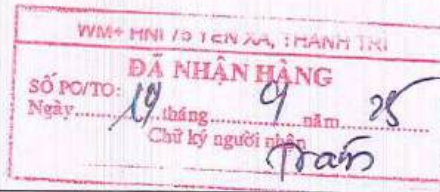 WM+ HNI 75 YÊN XÁ, THANH TRÌ
ĐÃ NHẬN HÀNG
SỐ PO/TO:
Ngày 19 tháng 9 năm 25
Chữ ký người nhận